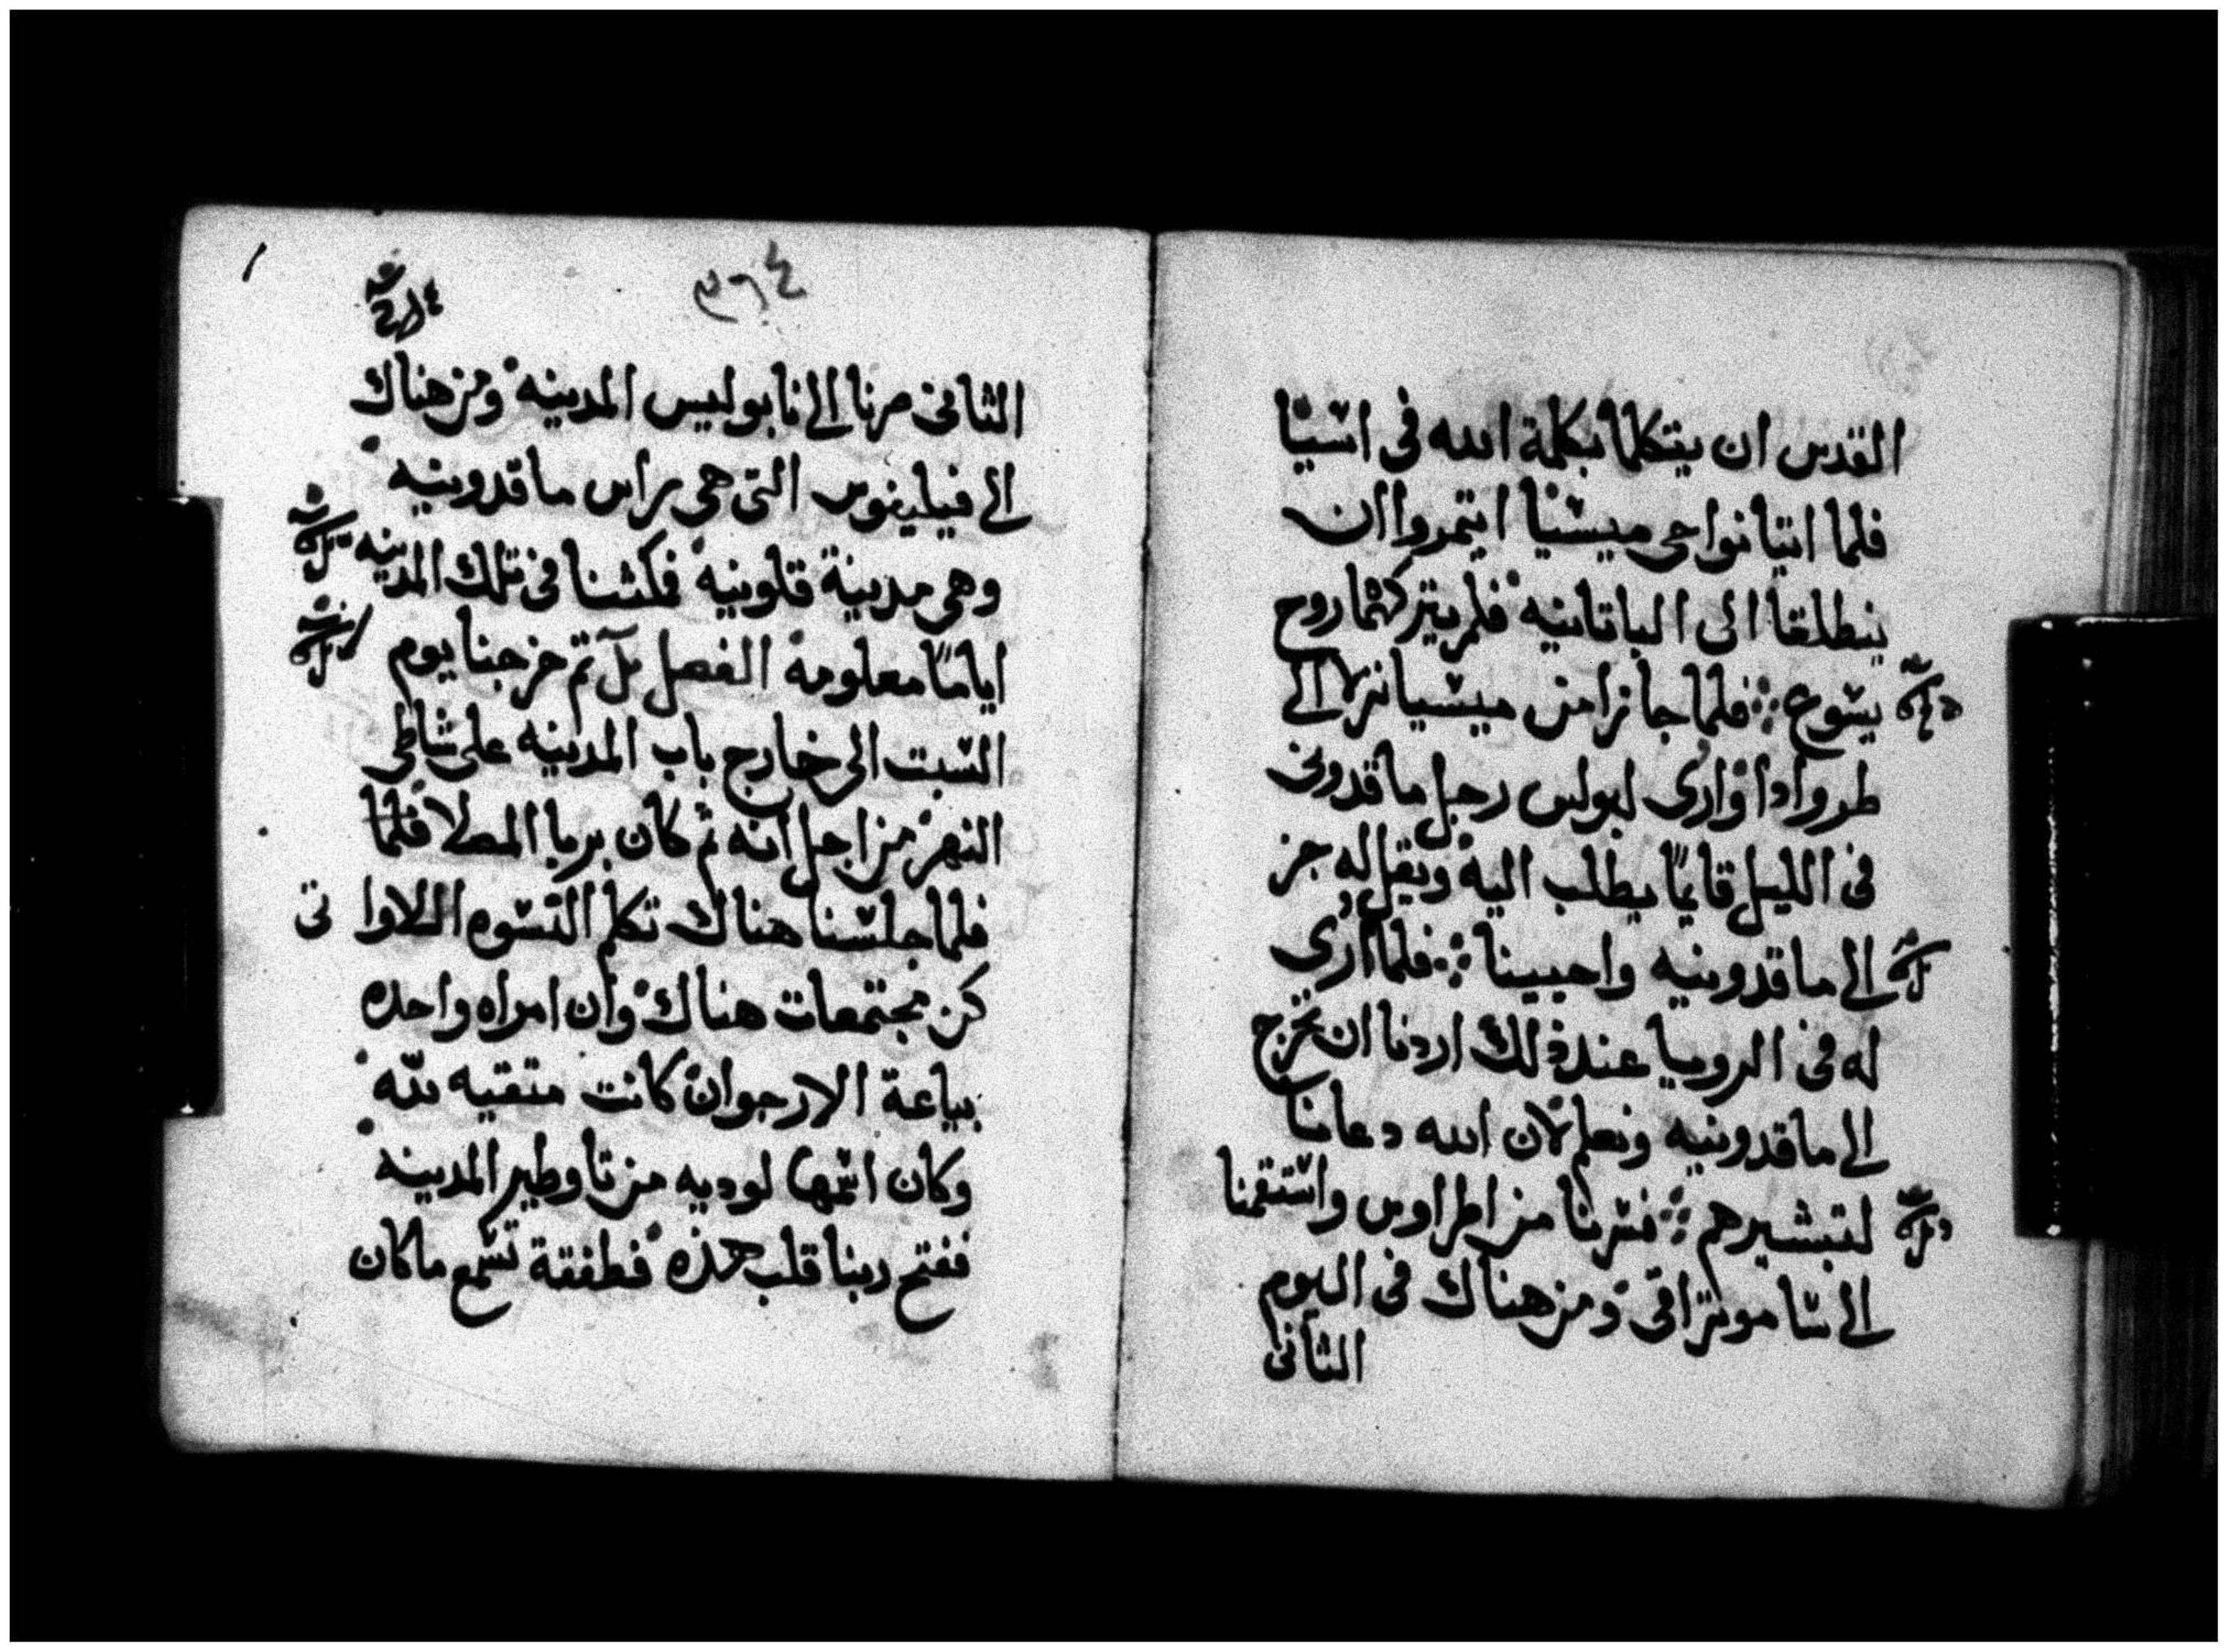 القدس ان يتكلما بكلمة الله فى اسيا
فلما اتيا نواحى ميسيا ايتمروا ان
ينطلقا الى الباتانيه فلم يتركهما روح
يسوع فلما جازا من ميسيا نزلا الى
طرواذا وارى لبولس رجل ماقدونى
فى الليل قايمًا يطلب اليه ويقل له جز
الى ماقدونيه واحيينا فلما ارى
له فى الرويا عند ذلك اردنا ان نخرج
الى ماقدونيه ونعلم لان الله دعانا
لتبشيرهم فسرنا من اطراوس واستقمنا
الى ساموتراقى ومن هناك فى اليوم
الثانى
٣٦٤
الثانى صرنا الى نابوليس المدينه ومن هناك
الى فيليفوس التى هى راس ماقدونيه
وهى مدينة قلونيه فمكثنا فى تلك المدينه
ايامًا معلومه الفصل ثم خرجنا يوم
السبت الى خارج باب المدينه على شاطى
النهر من اجل انه ثم كان يريا المصلا فلما
فلما جلسنا هناك تكلم النسوه اللاواتى
كن مجتمعات هناك وان امراه واحده
بياعة الارجوان كانت متقيه لله
وكان اسمها لوديه من تاوطير المدينه
ففتح ربنا قلب هذه فطفقة تسمع ماكان